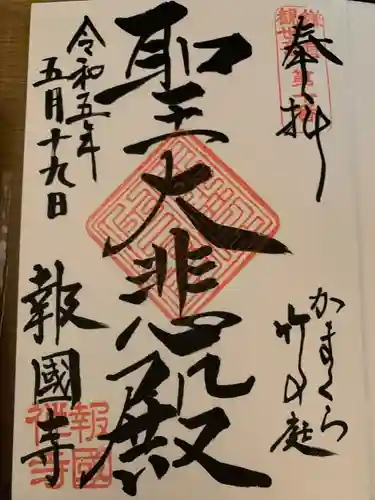 奉拝
かまくら
竹の庭
聖大悲殿
令和五年
五月十九日
報國寺
報國禅寺